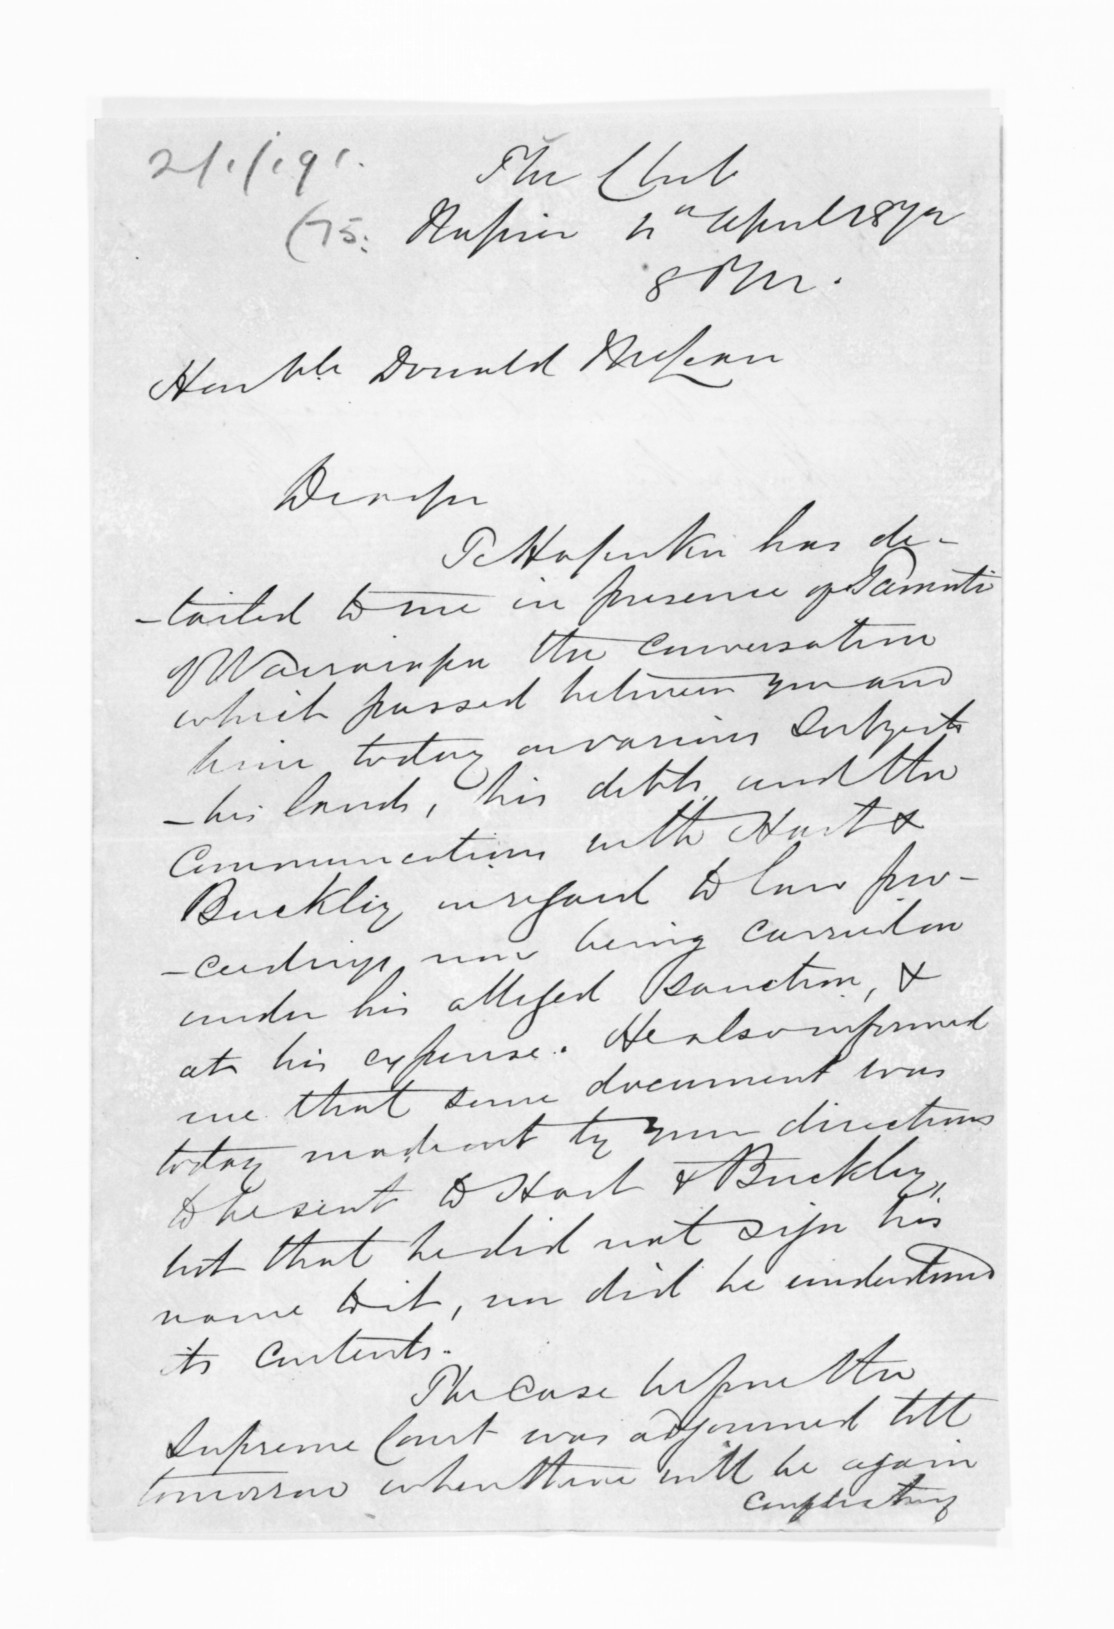 2/1/191.
The Club
(75. Napier 4th April 1872
8 PM.
Honble Donald McLean
Dear Sir
Te Hapuku has de-
-tailed to me in presence of Tamati
of Wairarapa the conversation
which passed between you and
him today on various subjects
- his lands, his debts and the
communications with Hart &
Buckley in regard to law pro-
-ceedings now being carried on
under his alleged sanction, &
at his expense. He also informed
me that some document was
today made out by your directions
to be sent to Hart & Buckley,
but that he did not sign his
name to it, nor did he understand
its contents.
The case before the
Supreme Court was adjourned till
tomorrow when there will be again
conflicting